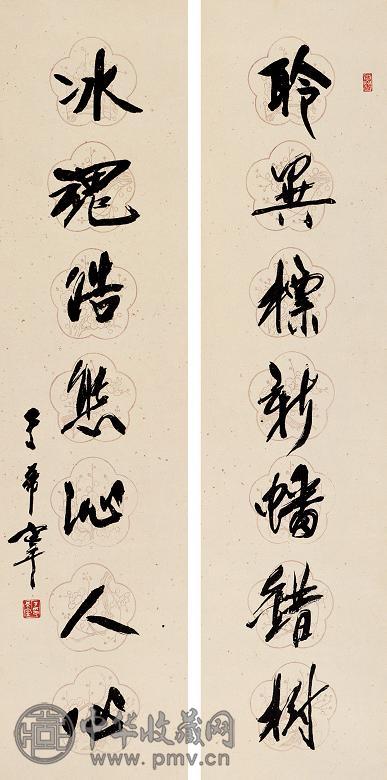 聆異標新幡錯樹
冰魂皓態沁人心
于希寧
中华收藏网
www.pmv.cn